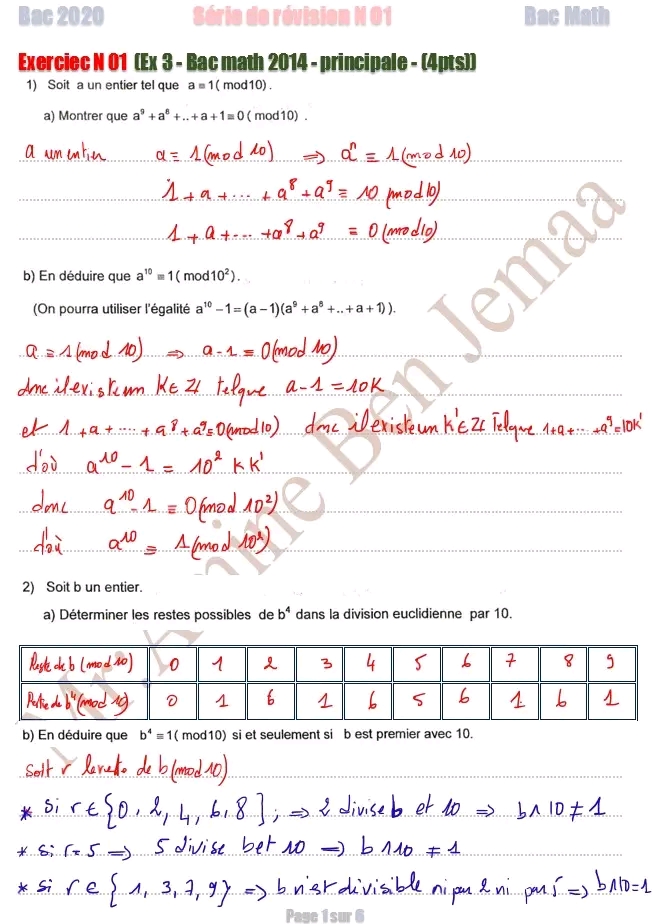 Bac 2020 Série de révision N 01 Bac Math
Exerciec N 01 (Ex 3 - Bac math 2014 - principale - (4pts))
1) Soit a un entier tel que a ≡ 1 ( mod10 ) .
a) Montrer que a⁹ + a⁸ + .. + a + 1 ≡ 0 ( mod10 ) .
a un entier a ≡ 1 (mod 10) ⇒ aⁿ ≡ 1 (mod 10)
1 + a + ... + a⁸ + a⁹ ≡ 10 (mod 10)
1 + a + ... + a⁸ + a⁹ ≡ 0 (mod 10)
b) En déduire que a¹⁰ ≡ 1 ( mod10² ) .
(On pourra utiliser l'égalité a¹⁰ − 1 = (a − 1)(a⁹ + a⁸ + .. + a + 1) ).
a ≡ 1 (mod 10) ⇒ a - 1 ≡ 0 (mod 10)
donc il existe un K ∈ ℤ telque a - 1 = 10K
et 1 + a + .... + a⁸ + a⁹ ≡ 0 (mod 10) donc il existe un K' ∈ ℤ Telque 1+a+... +a⁹ = 10K'
d'où a¹⁰ - 1 = 10² K K'
donc a¹⁰ - 1 ≡ 0 (mod 10²)
d'où a¹⁰ ≡ 1 (mod 10²)
2) Soit b un entier.
a) Déterminer les restes possibles de b⁴ dans la division euclidienne par 10.
Reste de b (mod 10) 0 1 2 3 4 5 6 7 8 9
Reste de b⁴ (mod 10) 0 1 6 1 6 5 6 1 6 1
b) En déduire que b⁴ ≡ 1 ( mod10 ) si et seulement si b est premier avec 10.
Soit r le reste de b (mod 10)
* Si r ∈ {0, 2, 4, 6, 8} ; ⇒ 2 divise b et 10 ⇒ b ∧ 10 ≠ 1
* Si r = 5 ⇒ 5 divise b et 10 ⇒ b ∧ 10 ≠ 1
* Si r ∈ { 1, 3, 7, 9} ⇒ b n'est divisible ni par 2 ni par 5 ⇒ b∧10 = 1
Page 1 sur 6
Mr: Amine Ben Jemaa